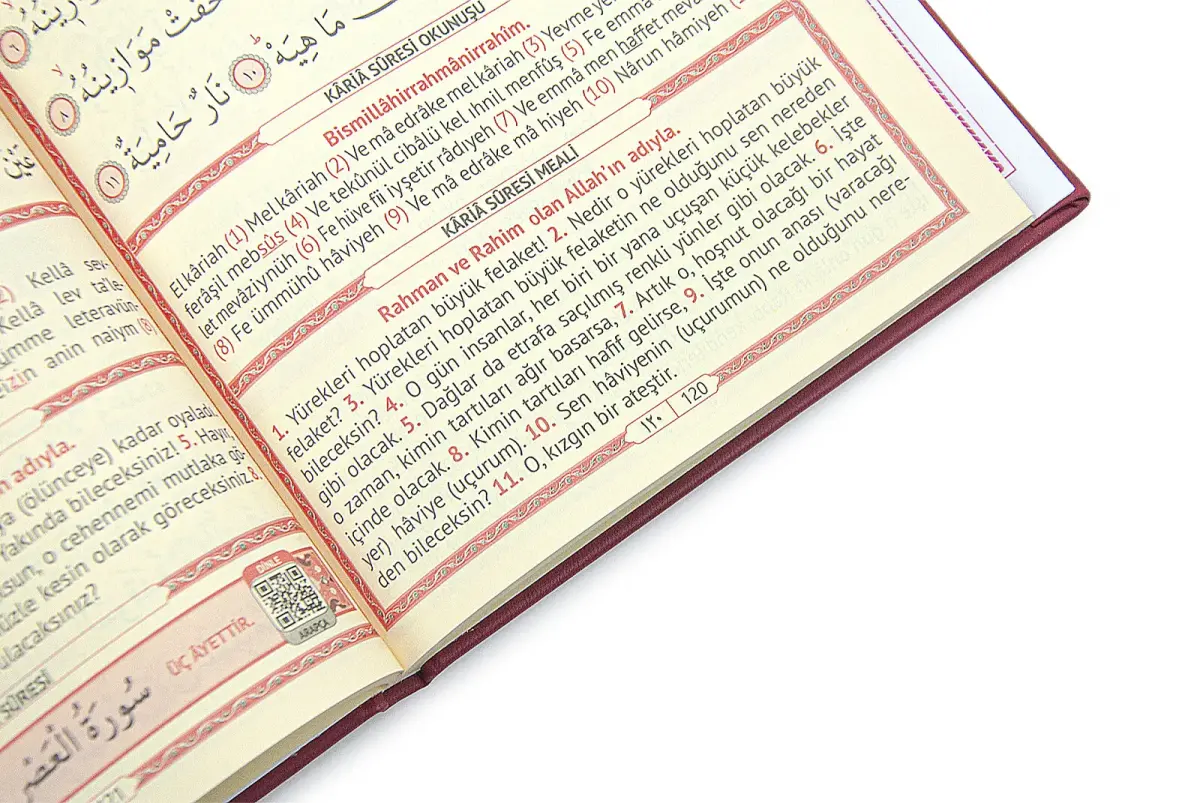 خفت موازينه
ما هيه ١٠ نار حامية ١١
KÂRİÂ SÛRESİ OKUNUŞU
Bismillâhirrahmânirrahîm.
Elkâriah (1) Melkâriah (2) Ve mâ edrâke melkâriah (3) Yevme
ferâşil mebsûs (4) Ve tekûnül cibâlü kel ıhnil menfûş (5) Fe emmâ
let mevâziynüh (6) Fe hüve fîi iyşetir râdıyeh (7) Ve emmâ men haffet
(8) Fe ümmühû hâviyeh (9) Ve mâ edrâke mâ hiyeh (10) Nârun hâmiyeh
KÂRİÂ SÛRESİ MEALİ
Rahman ve Rahim olan Allah'ın adıyla.
1. Yürekleri hoplatan büyük felaket! 2. Nedir o yürekleri hoplatan büyük
felaket? 3. Yürekleri hoplatan büyük felaketin ne olduğunu sen nereden
bileceksin? 4. O gün insanlar, her biri bir yana uçuşan küçük kelebekler
gibi olacak. 5. Dağlar da etrafa saçılmış renkli yünler gibi olacak. 6. İşte
o zaman, kimin tartıları ağır basarsa, 7. Artık o, hoşnut olacağı bir hayat
içinde olacak. 8. Kimin tartıları hafif gelirse, 9. İşte onun anası (varacağı
yer) hâviye (uçurum). 10. Sen hâviyenin (uçurumun) ne olduğunu nere-
den bileceksin? 11. O, kızgın bir ateştir.
١٢٠ | 120
Kellâ sev-
Kellâ lev ta'le-
leteravün-
anın naiym (8)
adıyla.
(ölünceye) kadar oyaladı.
bileceksiniz! 5. Hayır,
o cehennemi mutlaka gö-
kesin olarak göreceksiniz. 8.
DİNLE
ARAPÇA
ÜÇ ÂYETTİR.
SÛRESİ
سورة العصر